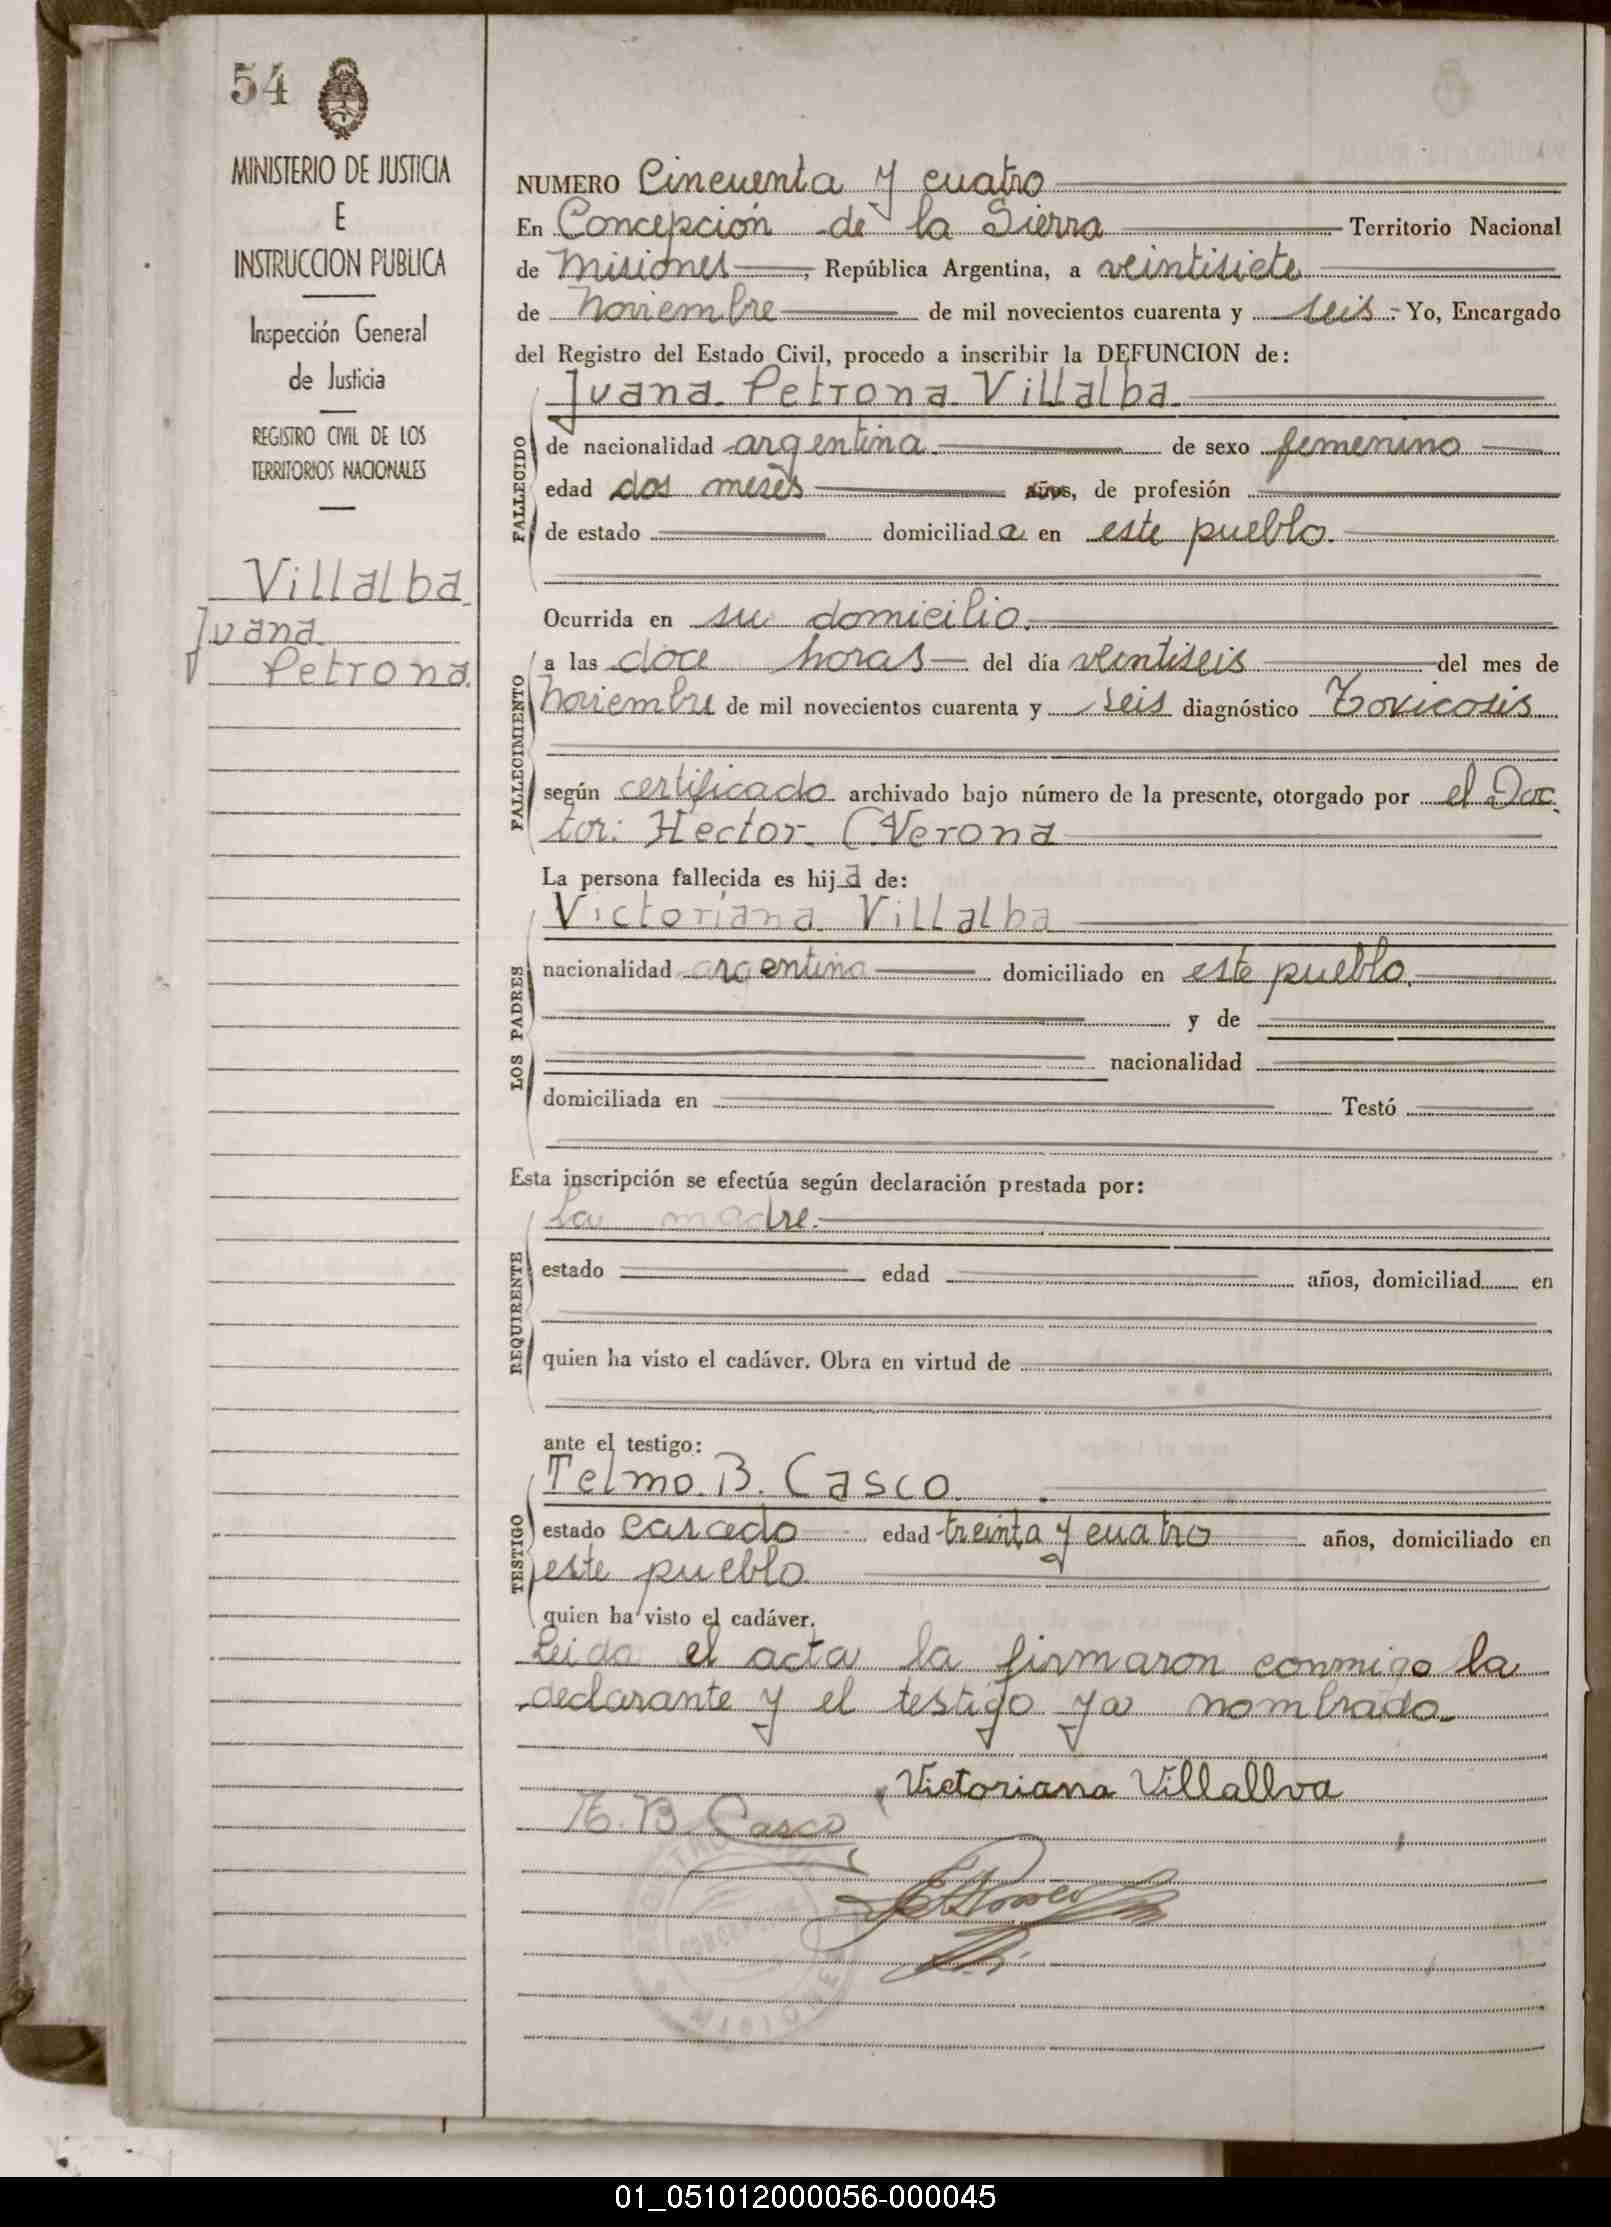 54
MINISTERIO DE JUSTICIA
E
INSTRUCCION PUBLICA
Inspección General
de Justicia
REGISTRO CIVIL DE LOS
TERRITORIOS NACIONALES
Villalba
Juana
Petrona.
NUMERO Cincuenta y cuatro
En Concepción de la Sierra Territorio Nacional
de Misiones, República Argentina, a veintisiete
de Noviembre de mil novecientos cuarenta y seis.- Yo, Encargado
del Registro del Estado Civil, procedo a inscribir la DEFUNCION de:
Juana Petrona Villalba
FALLECIDO
de nacionalidad argentina de sexo femenino
edad dos meses años, de profesión
de estado domiciliada en este pueblo.
Ocurrida en su domicilio.
FALLECIMIENTO
a las doce horas del día veintiseis del mes de
Noviembre de mil novecientos cuarenta y seis diagnóstico Toxicosis
según certificado archivado bajo número de la presente, otorgado por el Doc
tor: Hector C Verona
La persona fallecida es hija de:
Victoriana Villalba
LOS PADRES
nacionalidad argentina domiciliado en este pueblo.
y de
nacionalidad
domiciliada en Testó
Esta inscripción se efectúa según declaración prestada por:
la madre.
REQUIRENTE
estado edad años, domiciliad en
quien ha visto el cadáver. Obra en virtud de
ante el testigo:
Telmo. B. Casco
TESTIGO
estado casado edad treinta y cuatro años, domiciliado en
este pueblo
quien ha visto el cadáver.
Leida el acta la firmaron conmigo la
declarante y el testigo ya nombrado.
Victoriana Villallva
T. B. Casco
01_051012000056-000045